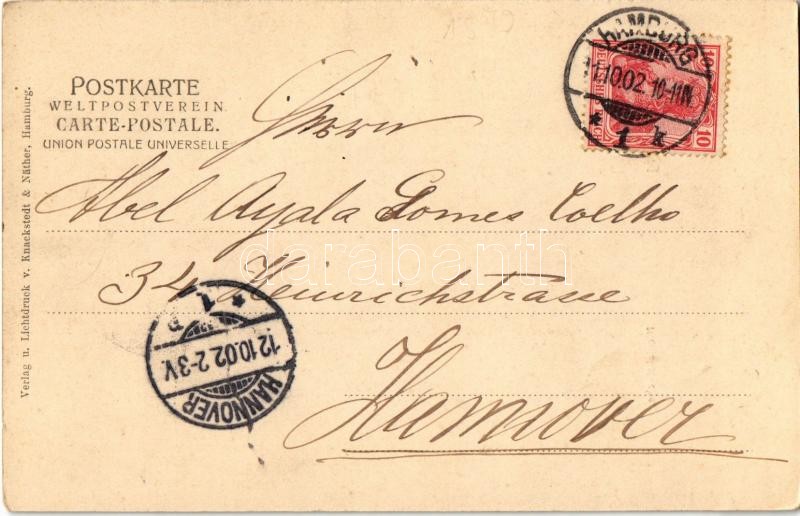 POSTKARTE
WELTPOSTVEREIN.
CARTE-POSTALE.
UNION POSTALE UNIVERSELLE
Verlag u. Lichtdruck v. Knackstedt & Näther, Hamburg.
HAMBURG
11.10.02 10-11N
* 1 k
10 10
Abel Ayala Gomes Coelho
34 Heinrichstrasse
Hannover
HANNOVER
12.10.02. 2-3V.
* 1
darabanth